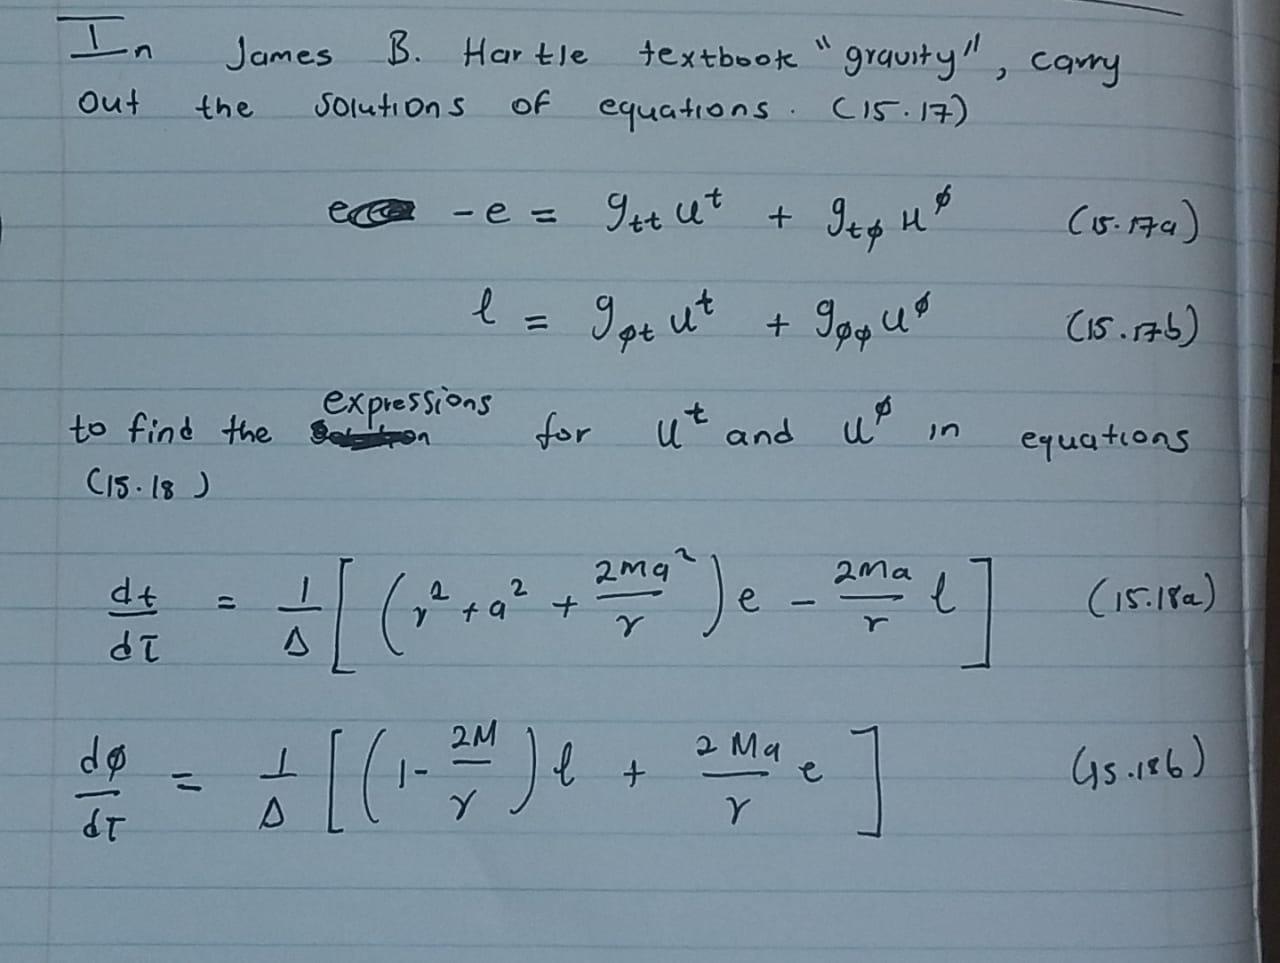 In James B. Hartle textbook "gravity", carry
out the solutions of equations. (15.17)
-e = g_tt u^t + g_tϕ u^ϕ (15.17a)
l = g_ϕt u^t + g_ϕϕ u^ϕ (15.17b)
to find the expressions for u^t and u^ϕ in equations
(15.18)
dt/dτ = 1/Δ [ ( r^2 + a^2 + 2Ma^2/r ) e - 2Ma/r l ] (15.18a)
dϕ/dτ = 1/Δ [ ( 1 - 2M/r ) l + 2Ma/r e ] (15.18b)